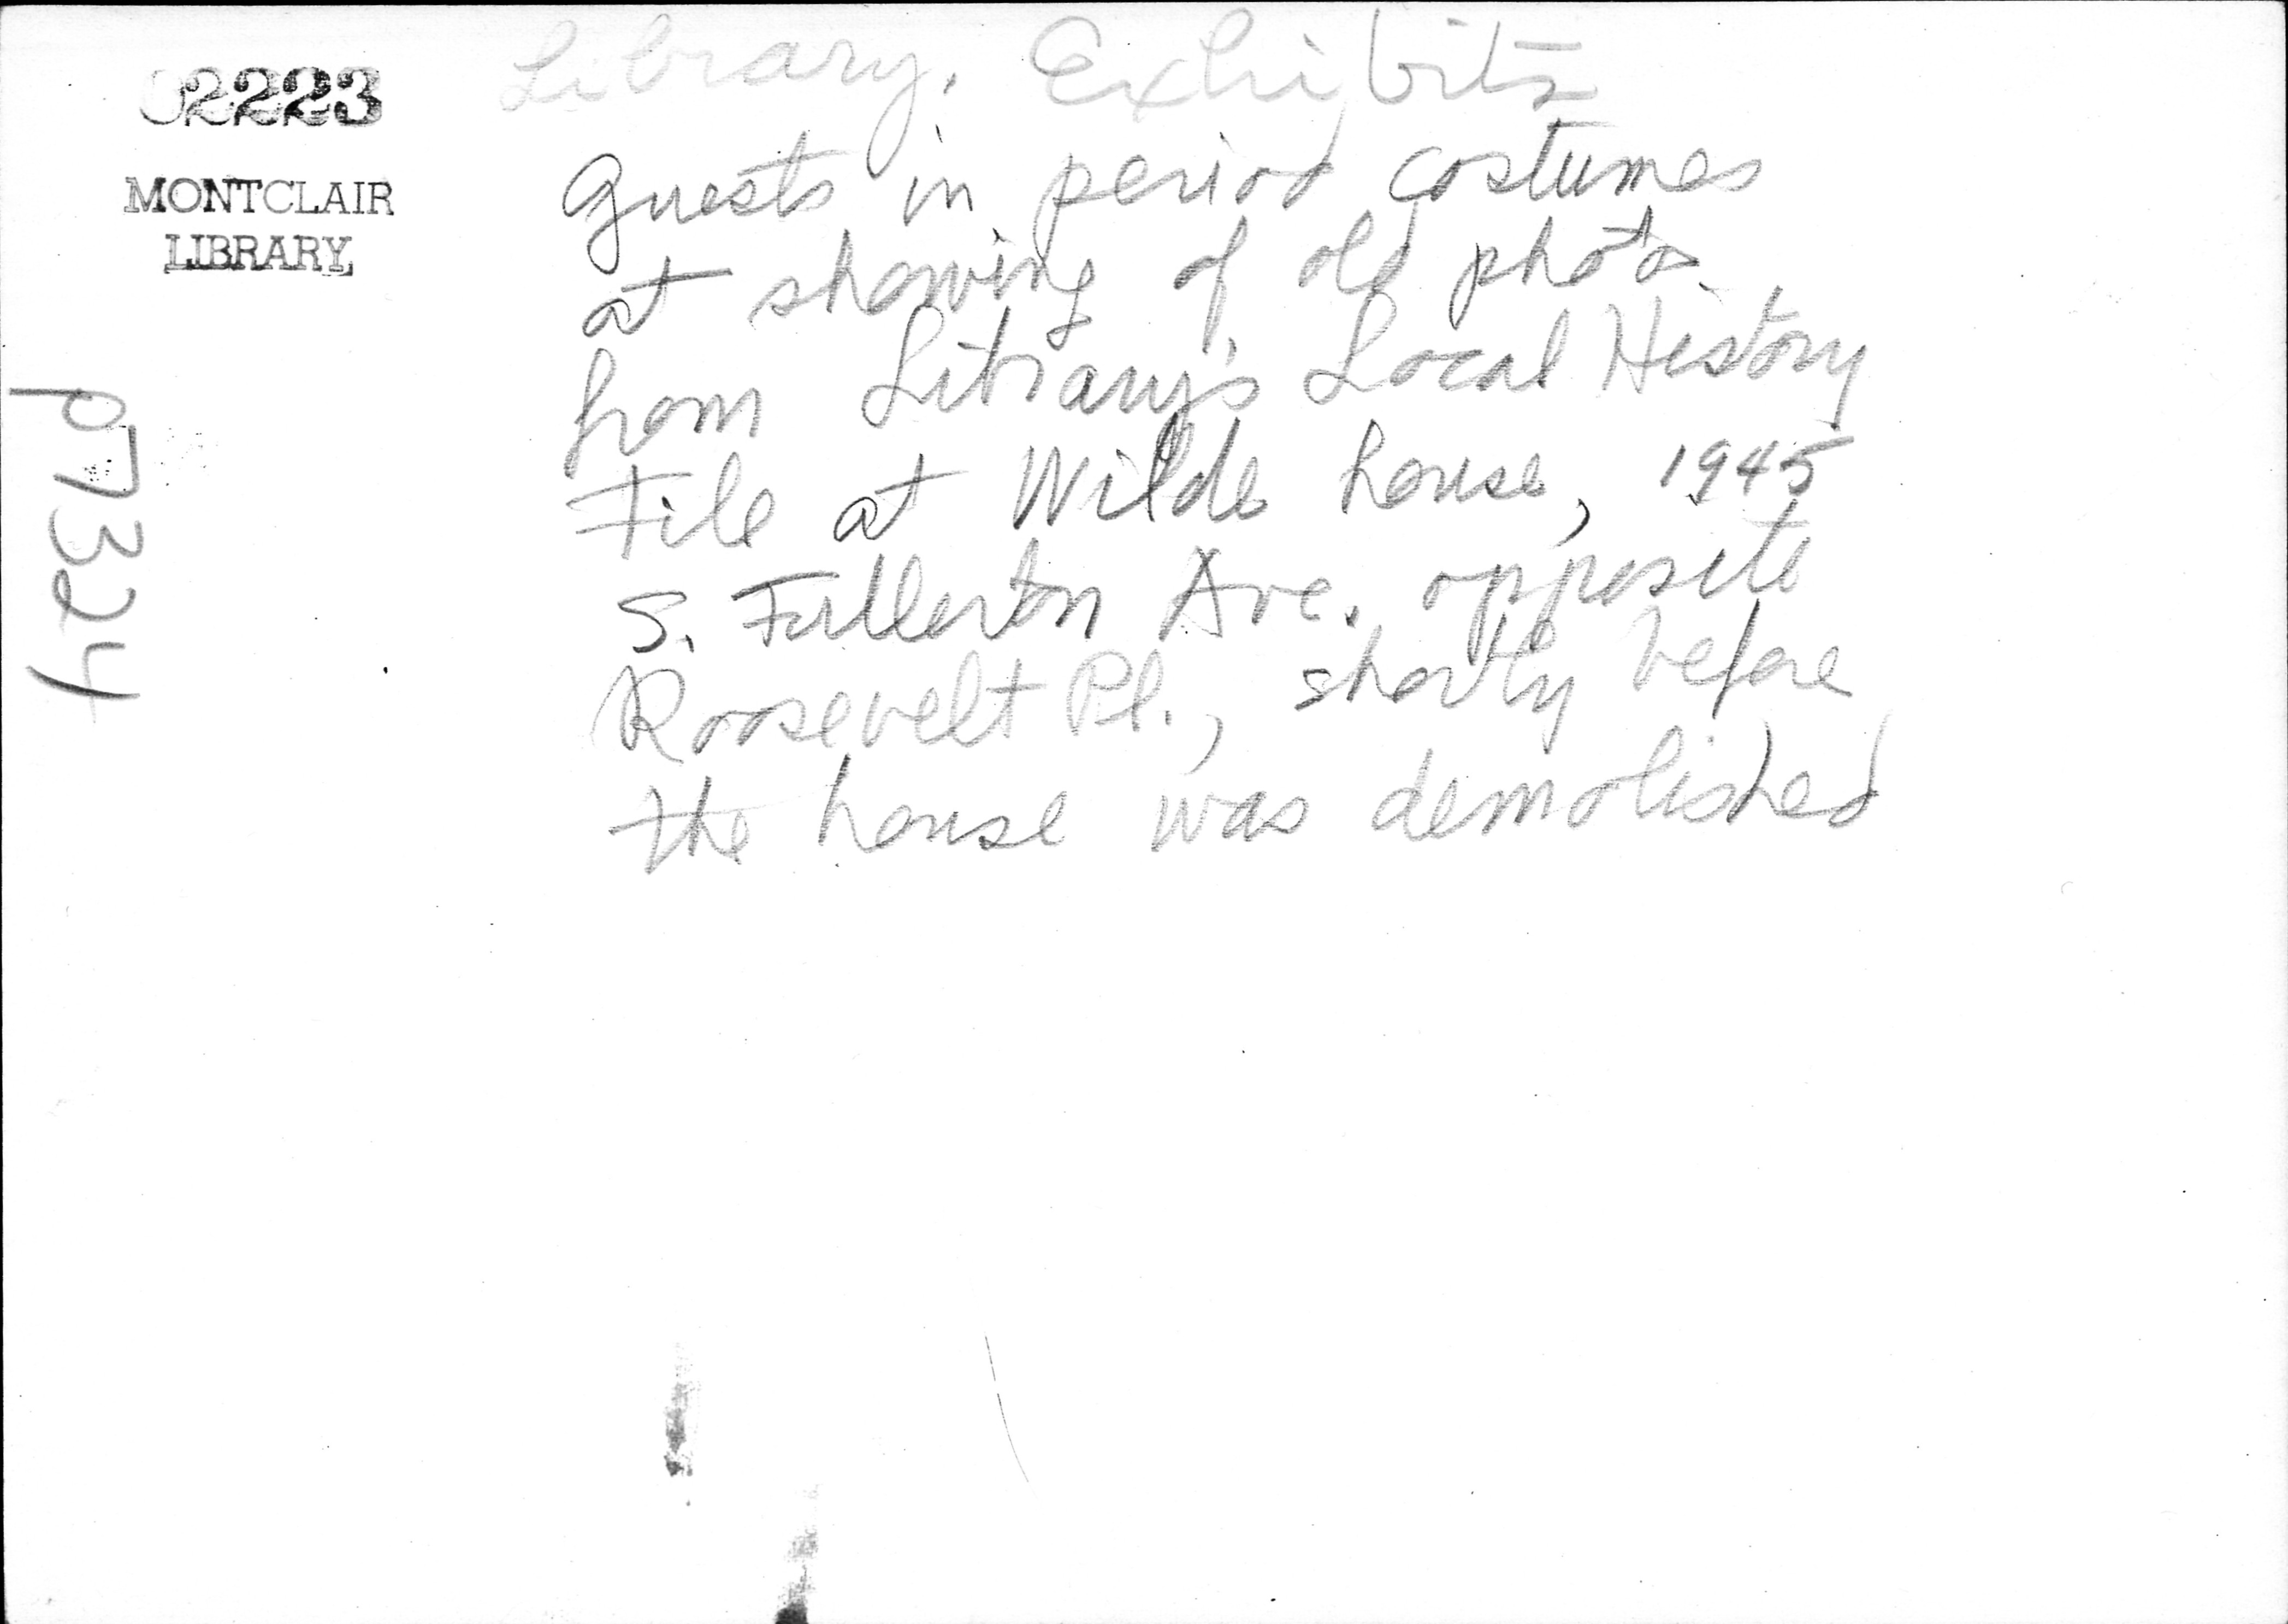 02223
MONTCLAIR
LIBRARY
P7324
Library. Exhibits
Guests in period costumes
at showing of old photos
from Library's Local History
File at Wilde house, 1945
S. Fullerton Ave. opposite
Roosevelt Pl., shortly before
the house was demolished